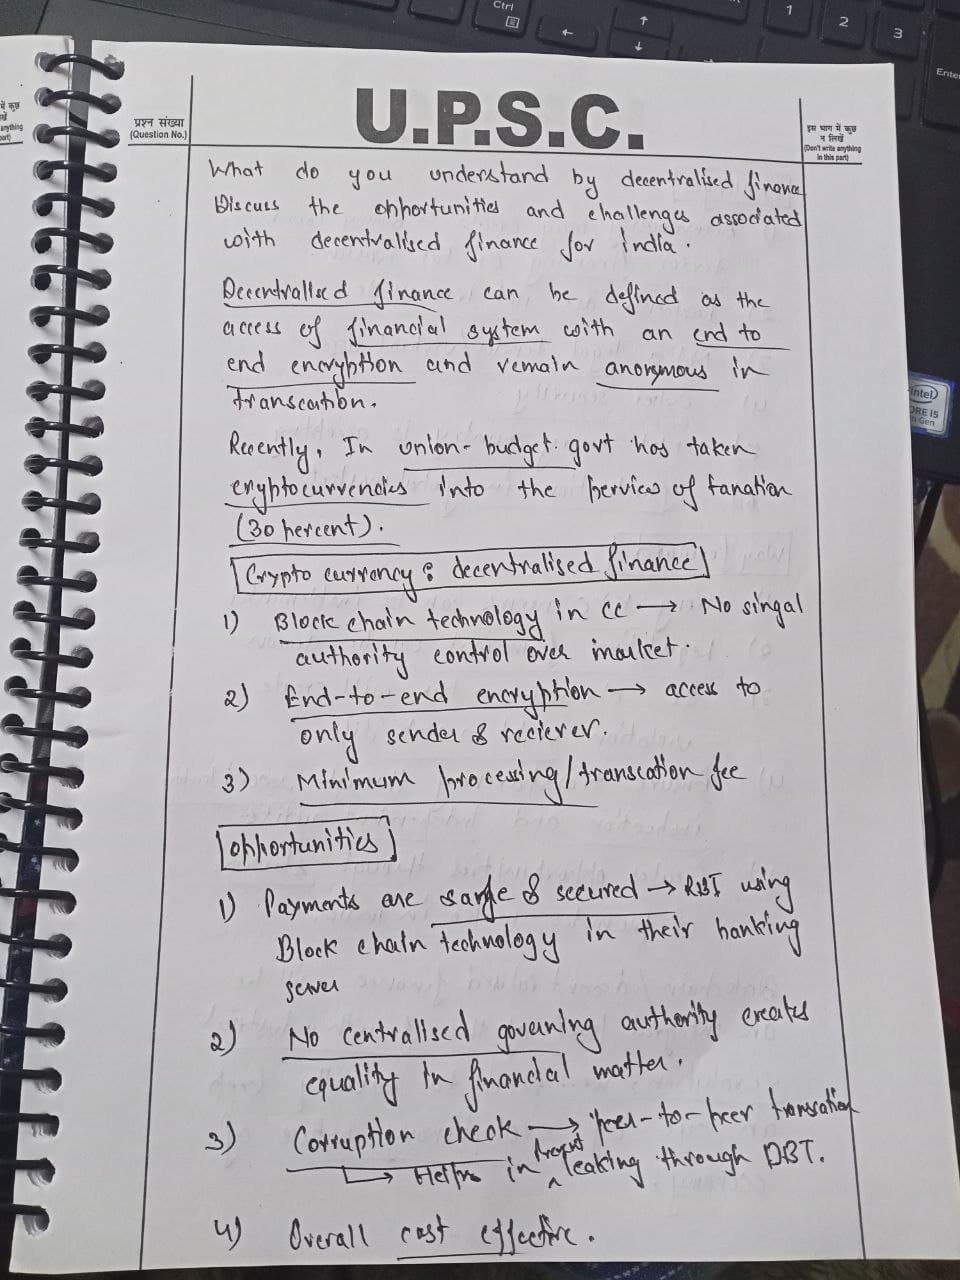 Ctrl
1
2
3
Enter
में कुछ
anything
part)
प्रश्न संख्या
(Question No.)
U.P.S.C.
इस भाग में कुछ
न लिखें
(Don't write anything
in this part)
What do you understand by decentralised finance
Discuss the opportunities and challenges associated
with decentralised finance for india.
Decentralised finance can be defined as the
access of financial system with an end to
end encryption and remain anonymous in
transcation.
Recently, In union-budget govt has taken
cryptocurrencies into the perview of taxation
(30 percent).
Crypto currency : decentralised finance
1) Block chain technology in cc → No singal
authority control over market.
2) End-to-end encryption → access to
only sender & reciever.
3) Minimum processing/transcation fee
opportunities
1) Payments are safe & secured → RBI using
Block chain technology in their banking
server
2) No centralised governing authority creates
equality in financial matter.
3) Corruption check → peer-to-peer transcation
→ Helps in prevent leaking through DBT.
4) Overall cost effective.
intel
CORE i5